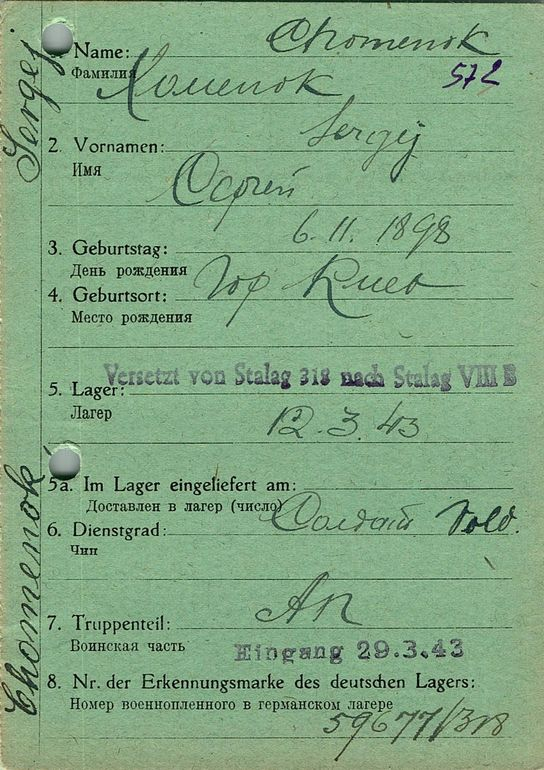 Chomenok
Name:
Фамилия Хоменок
572
Sergej
2. Vornamen:
Имя
Сергей
6. 11. 1898
3. Geburtstag:
День рождения
4. Geburtsort: Гор Киев
Место рождения
Versetzt von Stalag 318 nach Stalag VIII B
5. Lager:
Лагер
12. 3. 43
5a. Im Lager eingeliefert am:
Доставлен в лагер (число)
6. Dienstgrad: Солдат Sold.
Чин
7. Truppenteil: Ап
Воинская часть
Eingang 29.3.43
8. Nr. der Erkennungsmarke des deutschen Lagers:
Номер военнопленного в германском лагере
59677/318
Chomenok Sergej